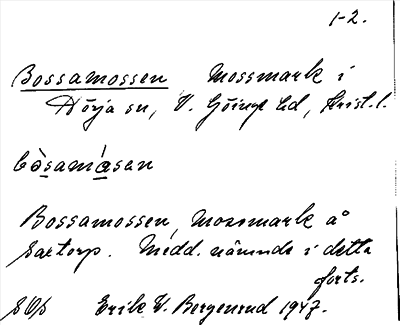 1-2.
Bossamossen Mossmark i
Norja sn, V. Göinge hd, Krist. l.
bòsamåsen
Bossamossen, mossmark å
Saxtorp. Medd. nämnde i detta
forts.
Erik W. Bergenrud 1947.